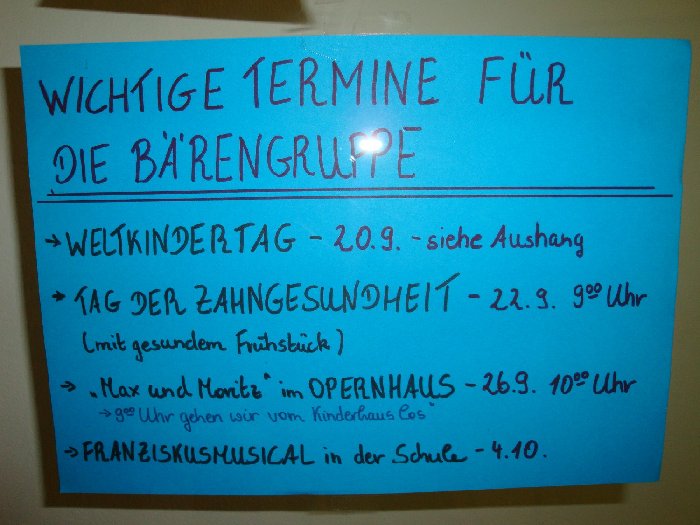 WICHTIGE TERMINE FÜR
DIE BÄRENGRUPPE
→ WELTKINDERTAG - 20.9. - siehe Aushang
→ TAG DER ZAHNGESUNDHEIT - 22.9. 9⁰⁰ Uhr
(mit gesundem Frühstück)
→ „Max und Moritz" im OPERNHAUS - 26.9. 10⁰⁰ Uhr
→ 9⁰⁰ Uhr gehen wir vom Kinderhaus los
→ FRANZISKUSMUSICAL in der Schule - 4.10.